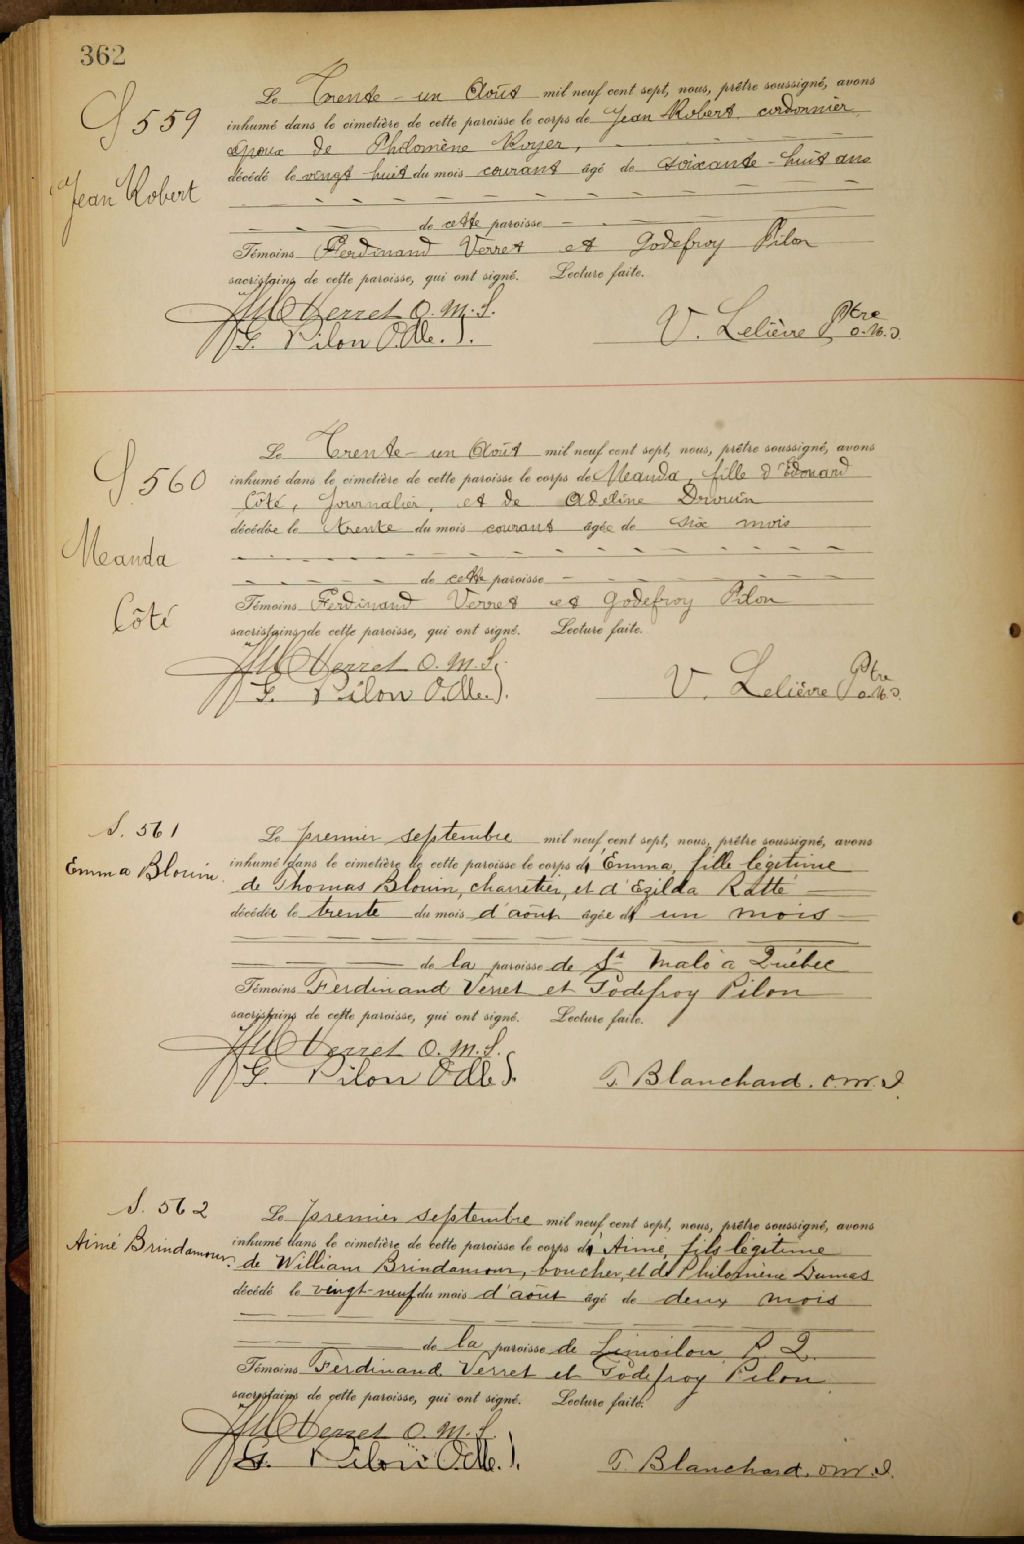 362
S 559
Jean Robert
Le Trente-un Août mil neuf cent sept, nous, prêtre soussigné, avons
inhumé dans le cimetière de cette paroisse le corps de Jean Robert, cordonnier,
époux de Philomène Royer,
décédé le vingt huit du mois courant âgé de soixante-huit ans
de cette paroisse
Témoins Ferdinand Verret et Godefroy Pilon
sacristains de cette paroisse, qui ont signé. Lecture faite.
Verret O.M.I.
G. Pilon O.M.I. V. Lelièvre Ptre O.M.I.
S 560
Meanda
Côté
Le Trente-un Août mil neuf cent sept, nous, prêtre soussigné, avons
inhumé dans le cimetière de cette paroisse le corps de Meanda, fille d'Edouard
Côté, Journalier, et de Adeline Drouin
décédée le trente du mois courant âgée de six mois
de cette paroisse
Témoins Ferdinand Verret et Godefroy Pilon
sacristains de cette paroisse, qui ont signé. Lecture faite.
Verret O.M.I.
G. Pilon O.M.I. V. Lelièvre Ptre O.M.I.
S. 561
Emma Blouin.
Le premier septembre mil neuf cent sept, nous, prêtre soussigné, avons
inhumé dans le cimetière de cette paroisse le corps d'Emma, fille légitime
de Thomas Blouin, charretier, et d'Ezilda Ratté
décédée le trente du mois d'août âgée d' un mois
de la paroisse de St Malo à Québec
Témoins Ferdinand Verret et Godefroy Pilon
sacristains de cette paroisse, qui ont signé. Lecture faite.
Verret O.M.I.
G. Pilon O.M.I. T. Blanchard. o.m.I.
S. 562
Aimé Brindamour.
Le premier septembre mil neuf cent sept, nous, prêtre soussigné, avons
inhumé dans le cimetière de cette paroisse le corps d'Aimé, fils légitime
de William Brindamour, boucher, et de Philomène Dumas
décédé le vingt-neuf du mois d'août âgé de deux mois
de la paroisse de Limoilou P. Q.
Témoins Ferdinand Verret et Godefroy Pilon
sacristains de cette paroisse, qui ont signé. Lecture faite.
Verret O.M.I.
G. Pilon O.M.I. T. Blanchard. o.m.I.